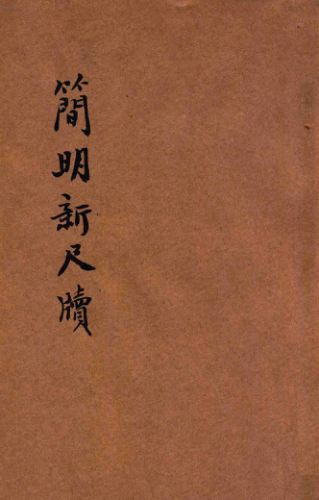 簡明新尺牘